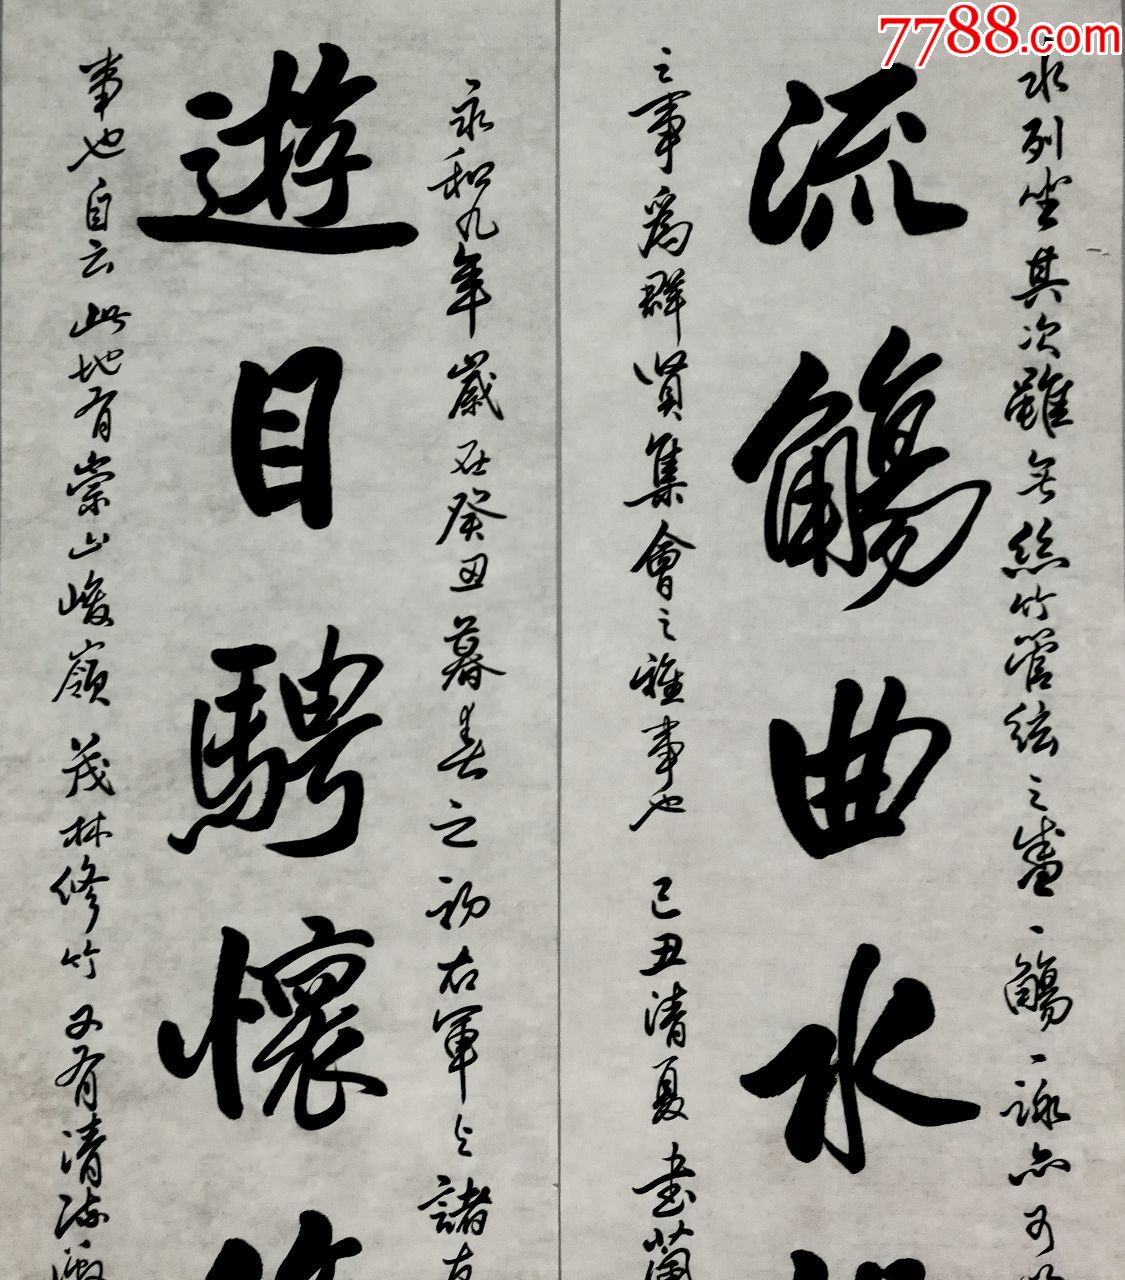 7788.com
水列坐其次雖無絲竹管絃之盛一觴一詠亦可
流觴曲水
之事為群賢集會之雅事也 己丑清夏書蘭
永和九年歲在癸丑暮春之初右軍與諸友
遊目騁懷
事也自云此地有崇山峻嶺茂林修竹又有清流激